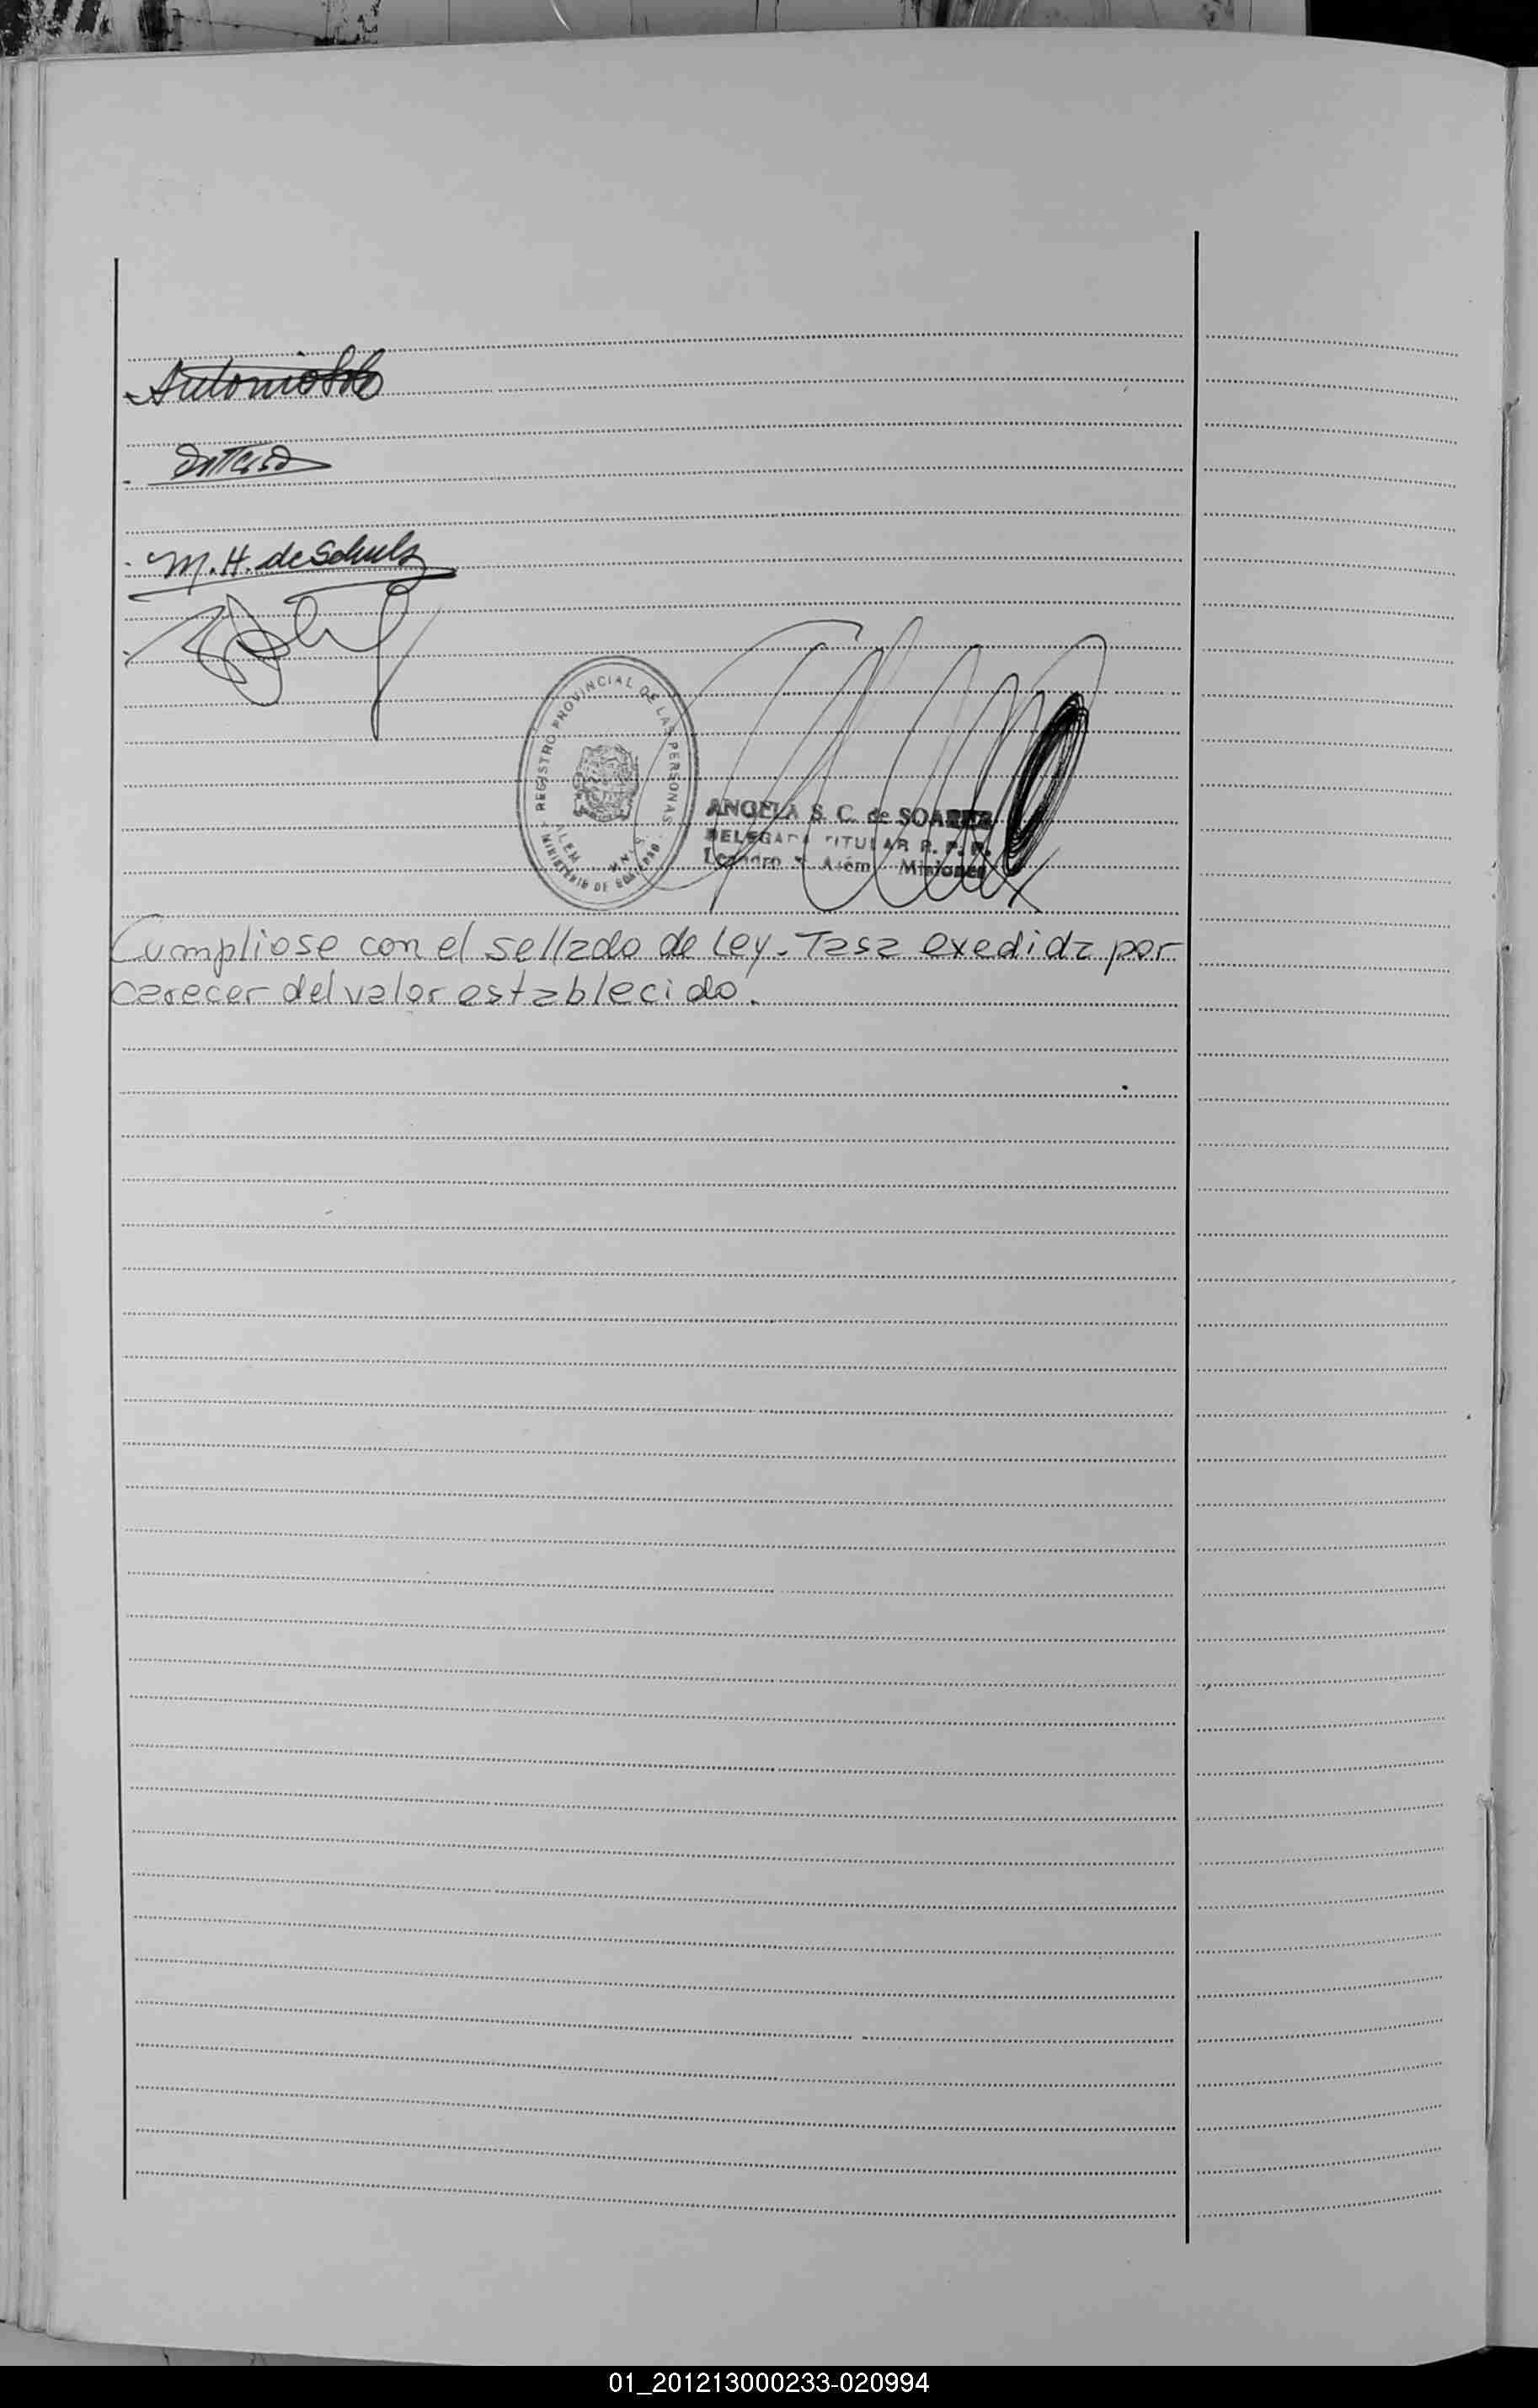 M. H. de Schulz
REGISTRO PROVINCIAL DE LAS PERSONAS
MINISTERIO DE
ANGELA S. C. de SOAREZ
DELEGADA TITULAR R. P. P.
Leandro N. Além Misiones
Cumpliose con el sellado de Ley. Tasa exedida por
carecer del valor establecido.
01_201213000233-020994